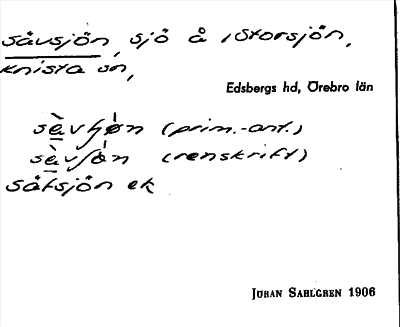 Såvsjön, sjö å Storsjön,
Knista sn,
Edsbergs hd, Örebro län
(prim.-ant.)
(renskrift)
Såfsjön ek
JÖRAN SAHLGREN 1906